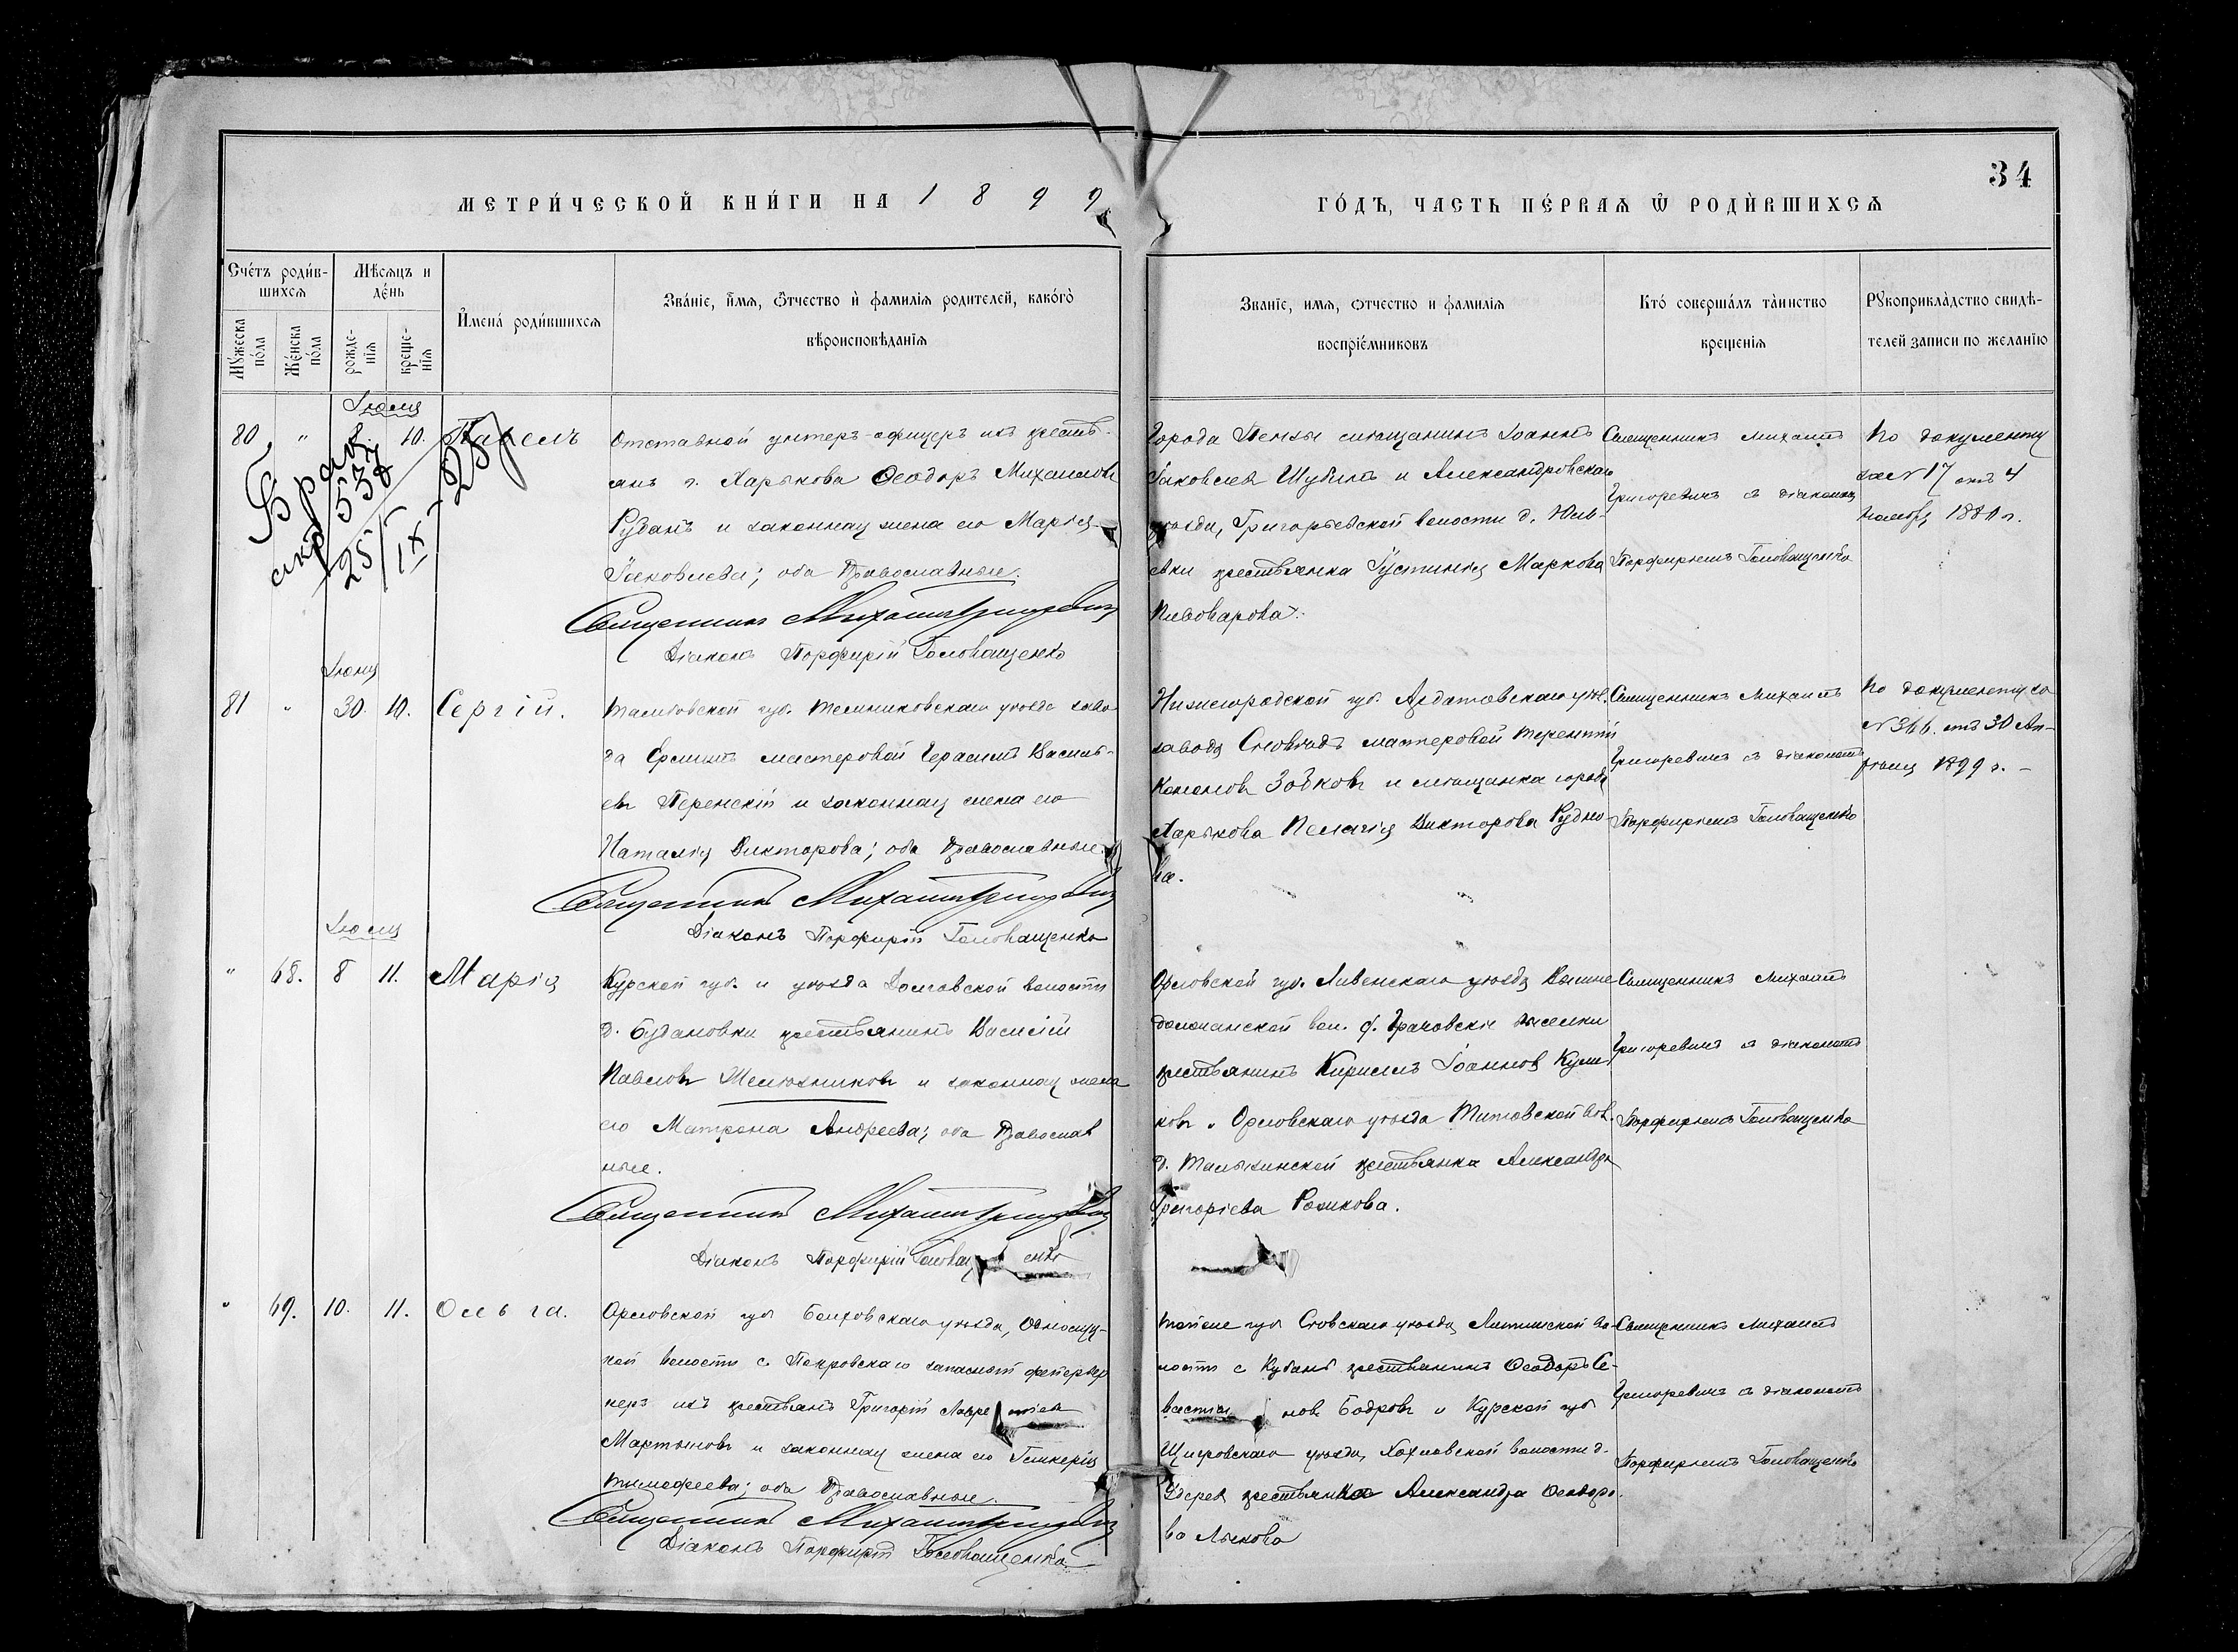 34
МЕТРИ́ЧЕСКОЙ КНИ́ГИ НА 1899
ГО́ДЪ, ЧАСТЬ ПЕ́РВАѦ Ѡ РОДИ́ВШИХСѦ
Сче́тъ роди́в-
шихсѧ
Мѣ́сѧцъ и
де́нь
Мꙋ́жеска
по́ла
Же́нска
по́ла
рожде-
нїѧ
креще-
нїѧ
И҆мена́ роди́вшихсѧ
Зва́нїе, и҆́мѧ, ѻ҆́тчество и҆ фамилїѧ родителей, како́гѡ
вѣроисповѣданїѧ
Званїе, имѧ, ѻтчество и фамилїѧ
воспрїе́мниковъ
Кто́ соверша́лъ та́инство
крещенїѧ
Рꙋкоприкла́дство свидѣ-
телей записи по желанїю
Іюля
80 " 8. 10. Павелъ
Бракъ
акт 537
25/IX-25
Отставной унтеръ-офицеръ изъ кресть-
янъ г. Харькова Ѳеодоръ Михаиловъ
Рубанъ и законная жена его Марія
Іаковлева; оба Православные.
Священникъ Михаилъ Григоревичъ
Діаконъ Порфирій Головащенко
Города Пензы мѣщанинъ Іоаннъ
Іаковлевъ Шубинъ и Александровскаго
уѣзда, Григорьевской волости д. Юль-
евки крестьянка Іустинія Маркова
Пивоварова.
Священникъ Михаилъ
Григоревичъ съ діакономъ
Порфиріемъ Головащенко
По документу
за № 17 отъ 4
ноября 1880 г.
Іюня
81 " 30. 10. Сергій.
Тамбовской губ. Темниковскаго уѣзда заво-
да Ермишъ мастеровой Герасимъ Василь-
евъ Перенскій и законная жена его
Наталія Викторова; оба Православные.
Священникъ Михаилъ Григоревичъ
Діаконъ Порфирій Головащенко
Нижегородской губ. Ардатовскаго уѣз.
завода мастеровой Терентій
Кононовъ Зобковъ и мѣщанка города
Харькова Пелагія Викторова Рудно-
ва.
Священникъ Михаилъ
Григоревичъ съ діакономъ
Порфиріемъ Головащенко
По документу за
№ 366. отъ 30 Ап-
рѣля 1899 г. –
Іюля
" 68. 8 11. Марія
Курской губ. и уѣзда Долговской волости
д. Будановки крестьянинъ Василій
Павловъ Шелюжниковъ и законная жена
его Матрона Андреева; оба Православ
ные.
Священникъ Михаилъ Григоревичъ
Діаконъ Порфирій Головащенко
Орловской губ. Ливенскаго уѣзда Вышне
должанской вол. д. Грачовскіе выселки
крестьянинъ Кириллъ Іоанновъ Кули-
ковъ и Орловскаго уѣзда Титовской вол.
д. крестьянка Александра
Григоріева Розикова.
Священникъ Михаилъ
Григоревичъ съ діакономъ
Порфиріемъ Головащенко
" 69. 10. 11. Ольга.
Орловской губ Болховскаго уѣзда, Однолуц-
кой волости с. Покровскаго запасной фейервер
керъ изъ крестьянъ Григорій Лаврентіевъ
Мартыновъ и законная жена его Гликерія
Тимофеева; оба Православные.
Священникъ Михаилъ Григоревичъ
Діаконъ Порфирій Головащенко
Тойже губ Сѣвскаго уѣзда во-
лости с Кубань крестьянинъ Ѳеодоръ Се-
вастіановъ Бодровъ и Курской губ
Щигровскаго уѣзда, Хохловской волости д.
Удерева крестьянка Александра Ѳеодоро-
ва Лыкова
Священникъ Михаилъ
Григоревичъ съ діакономъ
Порфиріемъ Головащенко